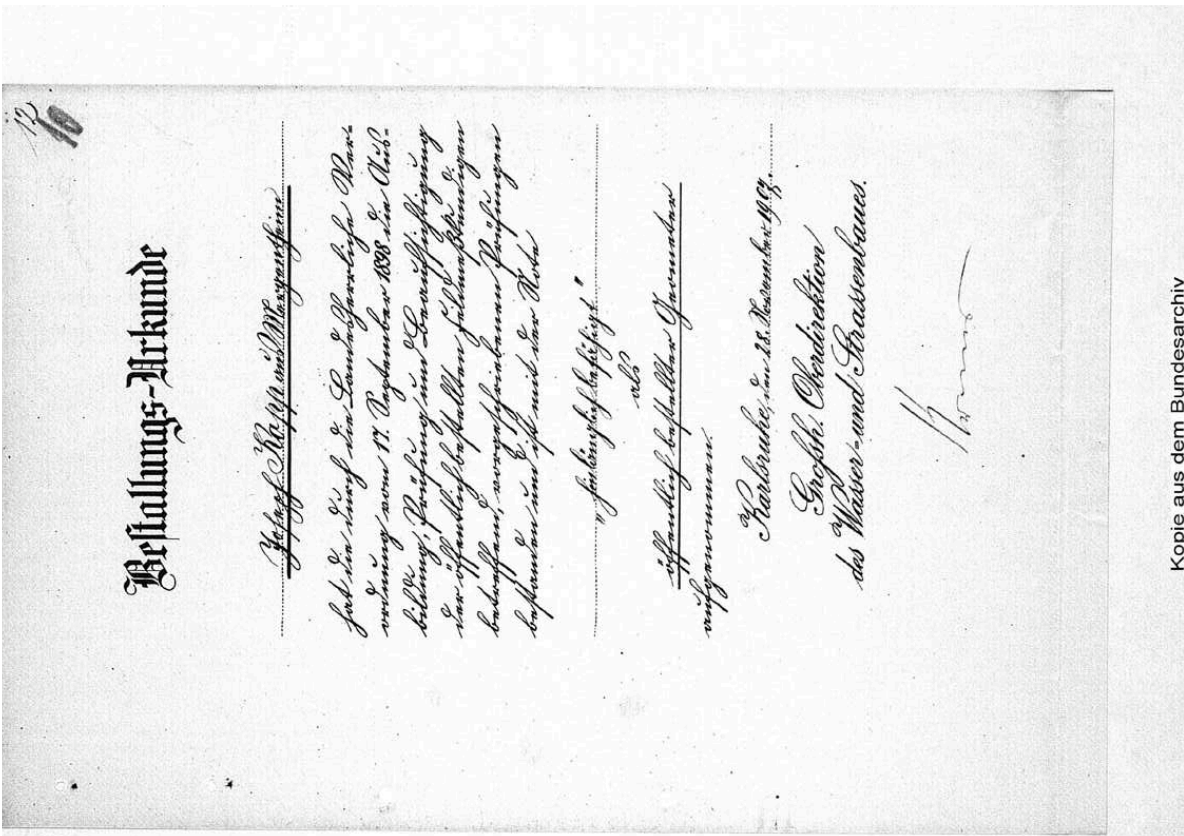 12
10
Bestallungs-Urkunde
Josef Rapp aus Mergentheim
hat die durch die Landesherrliche Ver-
ordnung vom 17. September 1898 die Aus-
bildung, Prüfung und Beaufsichtigung
der öffentlich bestellten
betreffend, vorgeschriebenen Prüfungen
bestanden und ist mit der Note
"hinlänglich befähigt"
als
öffentlich bestellter Geometer
aufgenommen.
Karlsruhe, den 28. November 1907.
Großh. Oberdirektion
des Wasser- und Strassenbaues.
Kopie aus dem Bundesarchiv